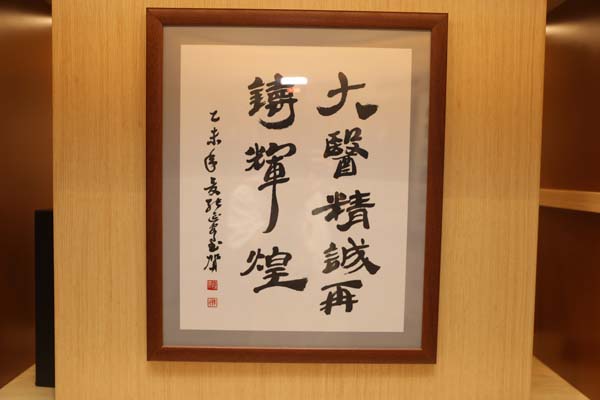 大醫精誠再
鑄輝煌
乙未年
賀